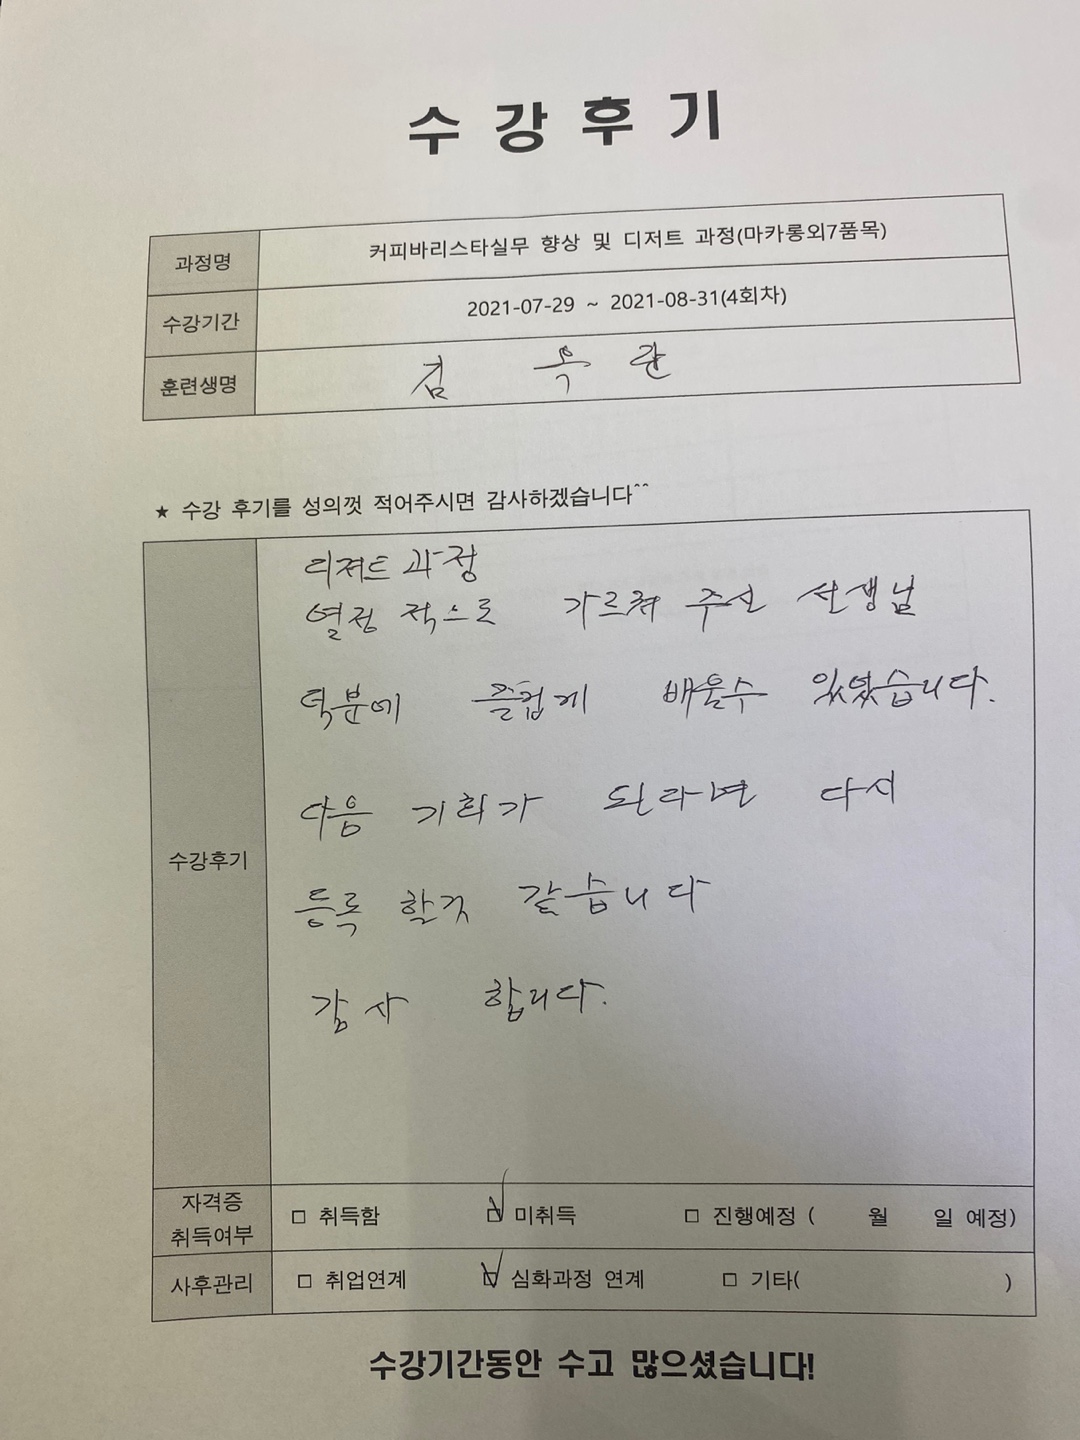 수 강 후 기
과정명 커피바리스타실무 향상 및 디저트 과정(마카롱외7품목)
수강기간 2021-07-29 ~ 2021-08-31(4회차)
훈련생명 김 옥 란
★ 수강 후기를 성의껏 적어주시면 감사하겠습니다^^
디져트 과정
열정 적으로 가르켜 주신 선생님
덕분에 즐겁게 배울수 있었습니다.
다음 기회가 된라면 다시
수강후기
등록 할것 같습니다
감사 합니다.
자격증
취득여부
□ 취득함 □ 미취득 □ 진행예정 ( 월 일 예정)
사후관리 □ 취업연계 □ 심화과정 연계 □ 기타( )
수강기간동안 수고 많으셨습니다!